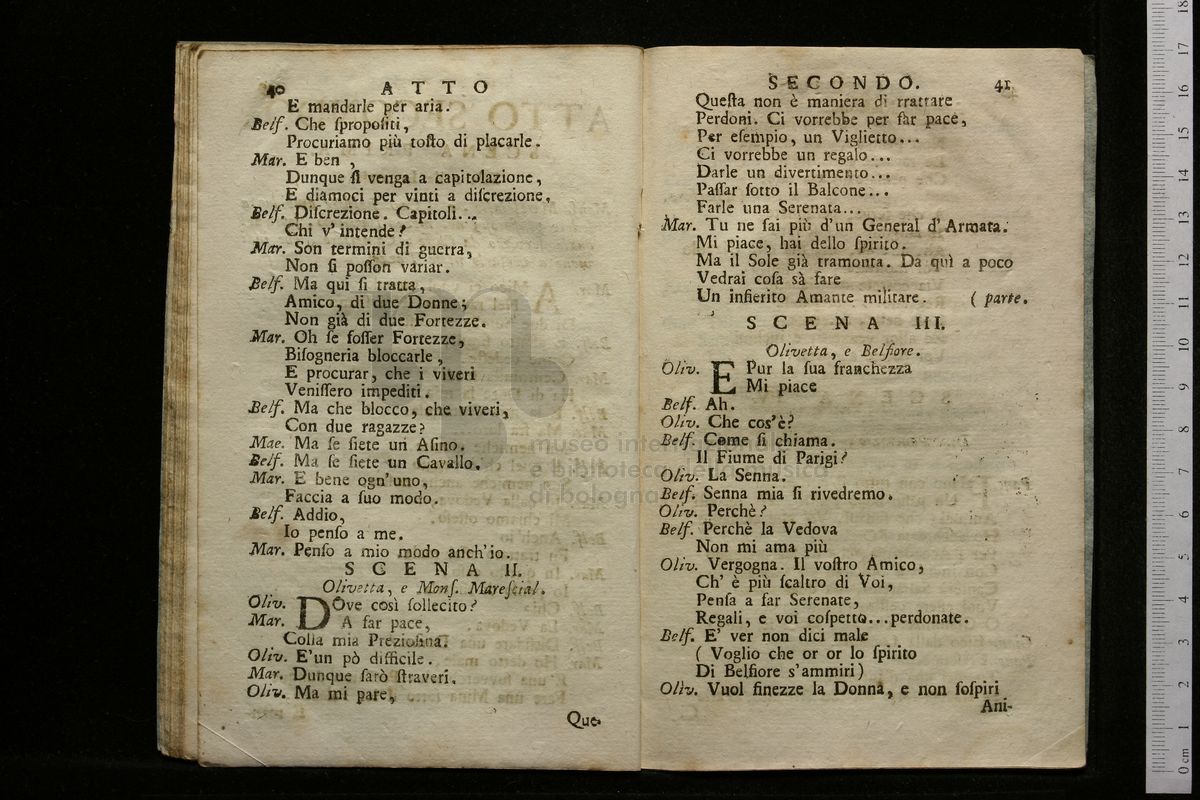 40 ATTO
E mandarle per aria.
Belf. Che ſpropoſiti,
Procuriamo più toſto di placarle.
Mar. E ben ,
Dunque ſi venga a capitolazione,
E diamoci per vinti a diſcrezione,
Belf. Diſcrezione. Capitoli...
Chi v'intende?
Mar. Son termini di guerra,
Non ſi poſſon variar.
Belf. Ma qui ſi tratta,
Amico, di due Donne;
Non già di due Fortezze.
Mar. Oh ſe foſſer Fortezze,
Biſogneria bloccarle,
E procurar, che i viveri
Veniſſero impediti.
Belf. Ma che blocco, che viveri,
Con due ragazze?
Mae. Ma ſe ſiete un Aſino.
Belf. Ma ſe ſiete un Cavallo.
Mar. E bene ogn'uno,
Faccia a ſuo modo.
Belf. Addio,
Io penſo a me.
Mar. Penſo a mio modo anch'io.
SCENA II.
Olivetta, e Monſ. Mareſcial.
Oliv. DOve così ſollecito?
Mar. A far pace,
Colla mia Prezioſina.
Oliv. E'un pò difficile.
Mar. Dunque ſarò ſtraveri.
Oliv. Ma mi pare,
Que-
SECONDO. 41
Queſta non è maniera di rrattare
Perdoni. Ci vorrebbe per far pace,
Per eſempio, un Viglietto...
Ci vorrebbe un regalo...
Darle un divertimento...
Paſſar ſotto il Balcone...
Farle una Serenata...
Mar. Tu ne ſai più d'un General d'Armata.
Mi piace, hai dello ſpirito.
Ma il Sole già tramonta. Da quì a poco
Vedrai coſa sà fare
Un infierito Amante militare. ( parte.
SCENA III.
Olivetta, e Belfiore.
Oliv. E Pur la ſua franchezza
Mi piace
Belf. Ah.
Oliv. Che cos'è?
Belf. Come ſi chiama.
Il Fiume di Parigi?
Oliv. La Senna.
Belf. Senna mia ſi rivedremo.
Oliv. Perchè?
Belf. Perchè la Vedova
Non mi ama più
Oliv. Vergogna. Il voſtro Amico,
Ch' è più ſcaltro di Voi,
Penſa a far Serenate,
Regali, e voi coſpetto...perdonate.
Belf. E' ver non dici male
( Voglio che or or lo ſpirito
Di Belfiore s'ammiri)
Oliv. Vuol finezze la Donna, e non ſoſpiri
Ani-